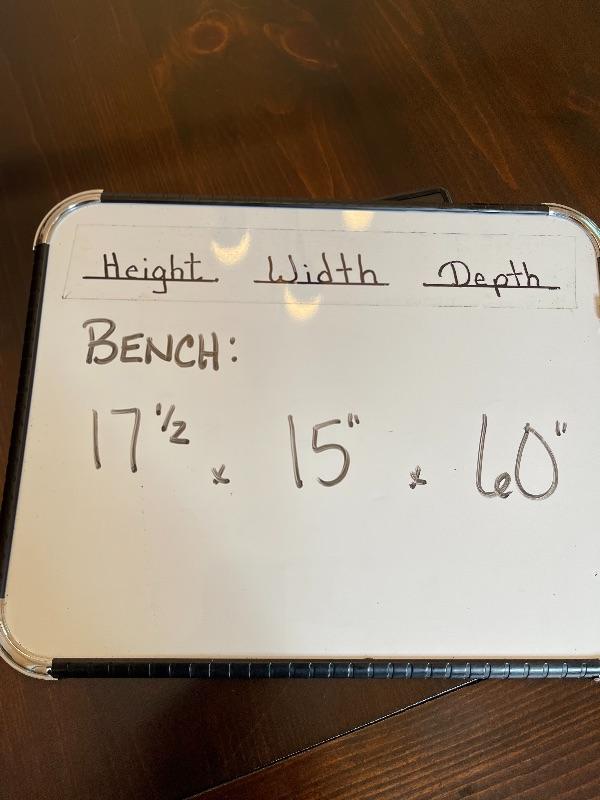 Height Width Depth
BENCH:
17 1/2 x 15" x 60"